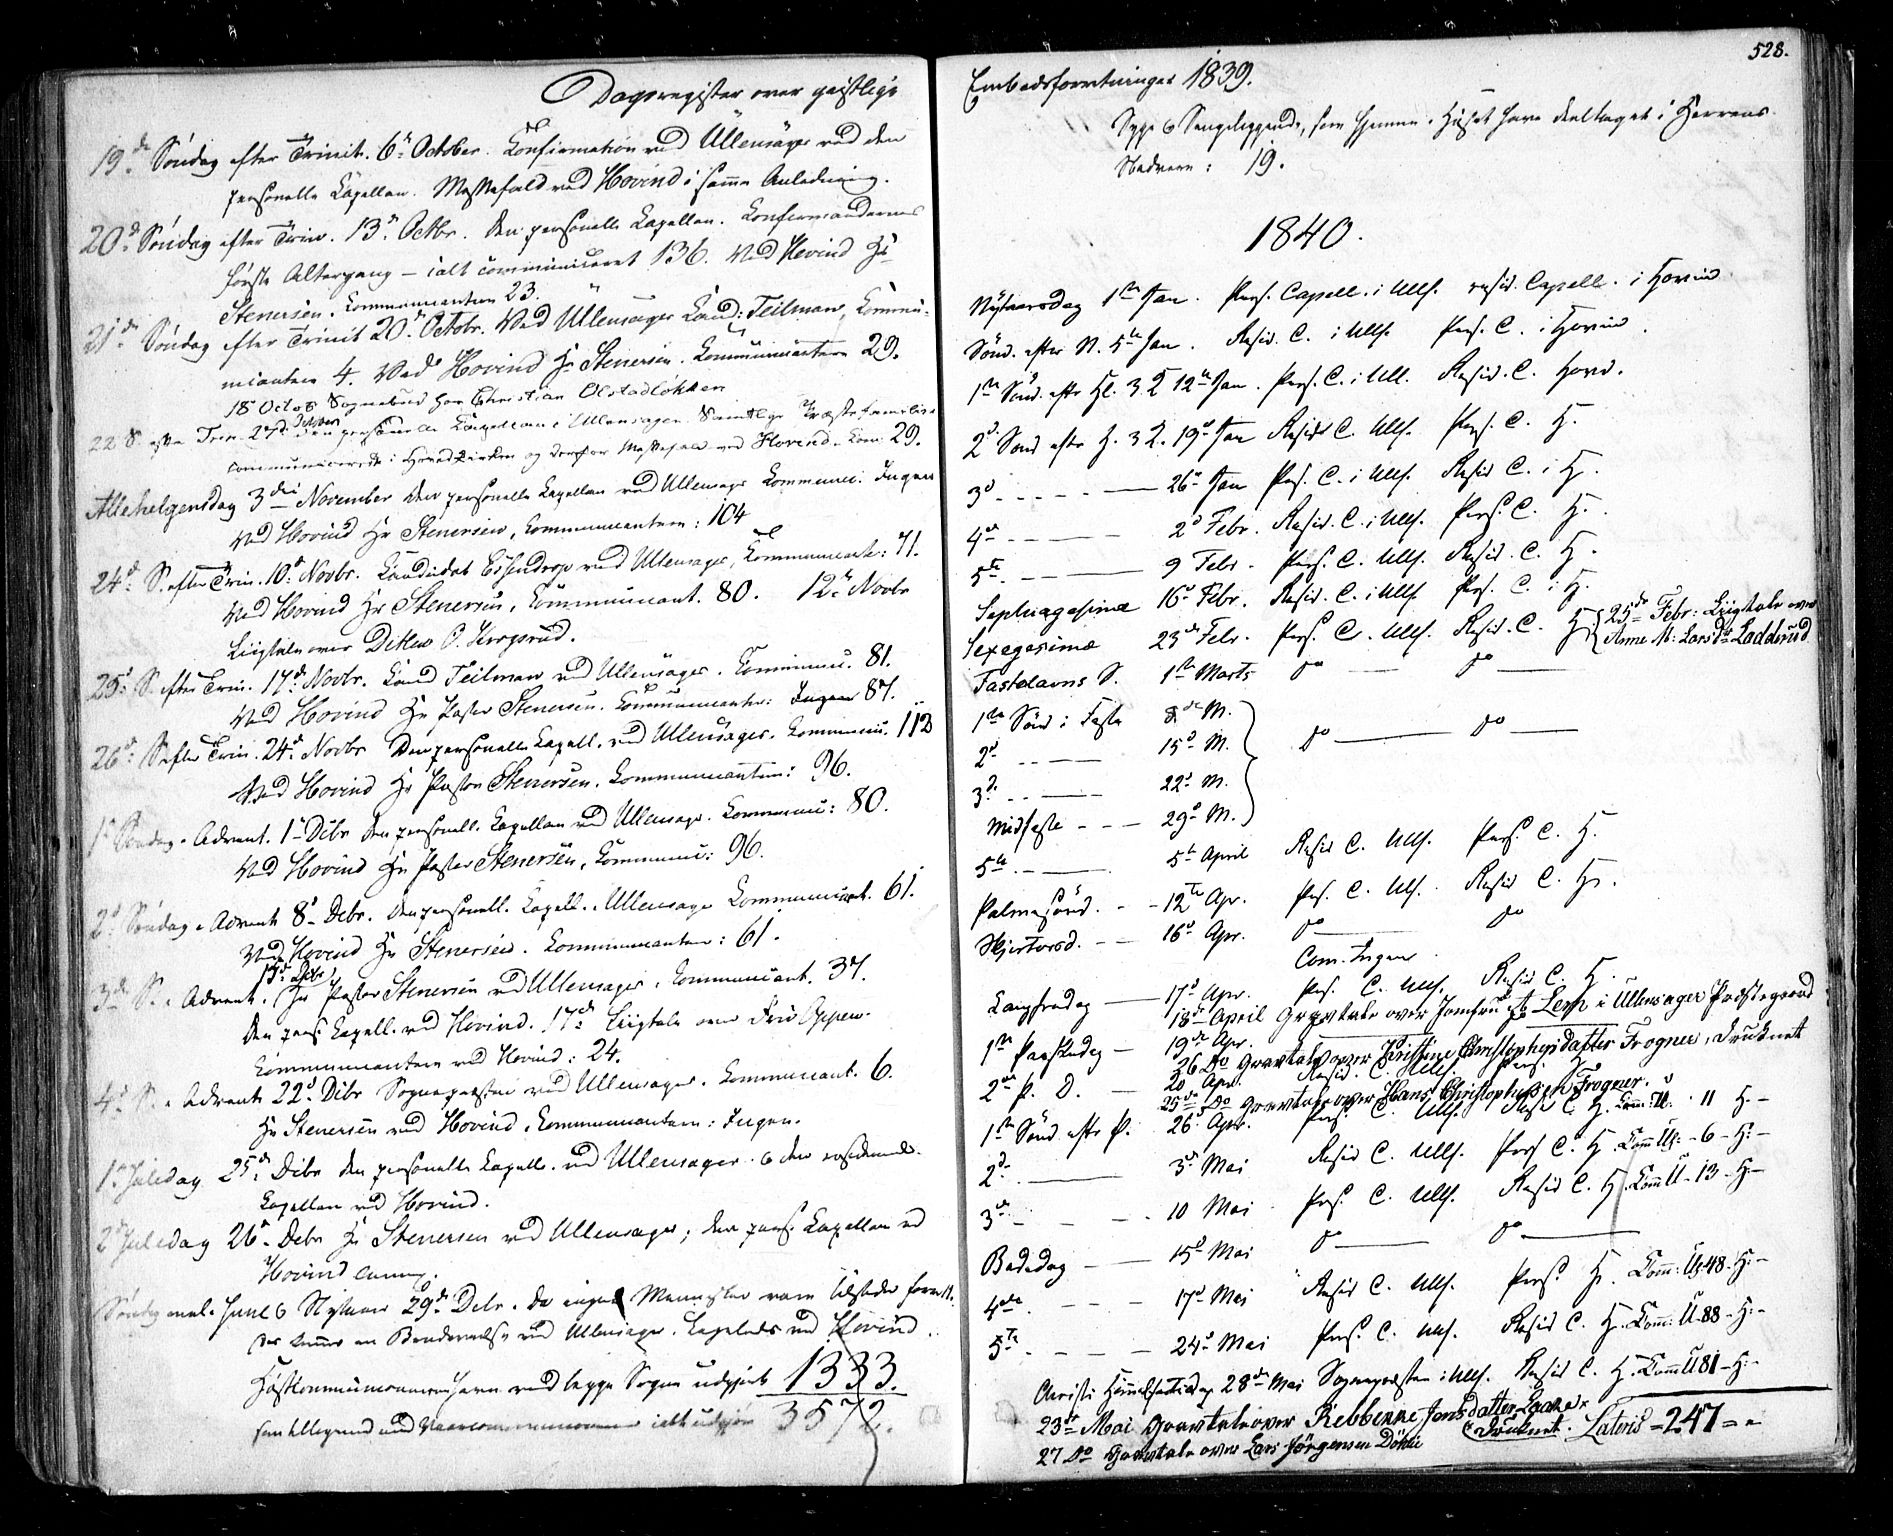 Dagsregister over geistlige
19de Søndag efter Trinit. 6te October. Confirmation ved Ullensager ved den
personelle Capellan. Messefald ved Hovind i samme Anledning.
20de Søndag efter Trin. 13de Octbr. Den personelle Capellan. Confirmandernes
første Altergang – ialt communiceret 136. Ved Hovind Hr
Stenersen. Communicanter 23.
21de Søndag efter Trinit 20de Octobr. Ved Ullensager Cand: Teilman, Commu-
nicanter 4. Ved Hovind Hr Stenersen. Communicantere 29.
18 Octob Sognebud hos Christian Olstadløkken
22 S. efter Trin. 27de October den personelle Capellan i Ullensager. Samtlige Præstefamilier
communicerede i Hovedkirken og derfor Messefald ved Hovind. Com: 29.
Allehelgensdag 3die November den personelle Capellan ved Ullensager Communic. Ingen
Ved Hovind Hr Stenersen, Communicantere: 104
24de S. efter Trin. 10de Novbr. Candidat ved Ullensager, Communicante: 71.
Ved Hovind Hr Stenersen, Communicant. 80. 12te Novbr
Liigtale over Ditlev O.
25de S. efter Trin. 17de Novbr. Cand Teilman ved Ullensager. Communic. 81.
Ved Hovind Hr Pastor Stenersen. Communicanter: 87.
26de S. efter Trin. 24de Novbr Den personelle Capell. ved Ullensager. Communic. 112
Ved Hovind Hr Pastor Stenersen. Communicanter: 96.
1ste Søndag i Advent. 1ste Debr den personell. Capellan ved Ullensager. Communic: 80.
Ved Hovind Hr Pastor Stenersen, Communic: 96.
2den Søndag i Advent 8de Debr. den personell. Capell. i Ullensager Communicant. 61.
Ved Hovind Hr Stenersen. Communicanter: 61.
15de Debr
3die S. i Advent. Hr Pastor Stenersen ved Ullensager. Communicant. 37.
Den pers. Capell. ved Hovind. 17de Liigtale over
Communicantere ved Hovind: 24.
4de S. i Advent 22de Debr Sognepresten ved Ullensager. Communicant. 6.
Hr Stenersen ved Hovind, Communicantere: Ingen.
1ste Juledag 25de Debr den personelle Capell. ved Ullensager & den residerende
Capellan ved Hovind.
2den Juledag 26de Debr Hr Stenersen ved Ullensager; den pers. Capellan ved
Hovind
Søndag mel. Juul & Nytaar 29de Debr. Da ingen Mennesker vare tilstede
ved Ullensager. ved Hovind.
Høstcommunionen ved begge Sogne udgjør 1333.
ialt udgjør 3572.
528.
Embedsforretninger 1839.
Syge & Sengeliggende, som hjemme i Huset have deeltaget i Herrens
Nadvere: 19.
1840.
Nytaarsdag 1ste Jan. Pers. Capell. i Ulls. resid. Capell. i Hovin
Sønd. efter N. 5te Jan. Resid. C. i Ulls. Pers. C. i Hovin.
1ste Sønd. eft. Hl. 3 K 12te Jan. Pers. C. i Ull. Resid. C. Hovd.
2den Sønd efter H. 3 K. 19de Jan Resid C. Ulls. Pers. C. H.
3die - - - - 26de Jan Pers. C. i Ulls. Resid C. i H.
4de - - - 2den Febr. Resid. C. i Ulls. Pers. C. H.
5te - - 9 Febr. Pers. C. Ulls. Resid. C. H.
Septuagesima 16de Febr. Resid. C. i Ulls Pers. C. i H.
Sexagesima 23de Febr. Pers. C. Ulls. Resid. C. H. 25de Febr: Liigtale over
Anne M: Larsdr Ladderud
Fastelavns S. 1ste Marts do do
1ste Sønd i Faste 8de M.
2den - - 15de M. do do
3die - - 22de M.
Midfaste - - - 29de M.
5te - 5te April Resid C. Ulls. Pers. C. H.
Palmesønd. - - 12te Apr. Pers. C. Ulls. Resid C. H.
Skjertorsd. - - 16de Apr. do do
Com. Ingen
Langfredag 17de Apr. Pers. C. Ulls. Resid C. H.
18de April Gravtale over Jomfru Lem i Ullensager Præstegaard
1ste Paaskedag - 19de Apr.
26 do Gravtale over Kirstine Christophersdatter Frogner, Druknet
2den P. D. - 20 Apr. Resid. C. Ulls. Pers. H
25de do Gravtale over Hans Christophersen Frogner.
1ste Sønd. efter P. 26de Apr. Pers. C. Ulls. Resid C. H. Comm: U. 11 H. -
2den - 3die Mai Resid C. Ulls. Pers C. H. Comm Ul: - 6 - H: -
3die - - - 10 Mai Pers. C. Ulls. Resid C. H. Comm U - 13 - H: -
Bededag 15de Mai do do
4de - - - 17de Mai Resid C. Ulls. Pers. H. Comm: Ul: 48. H: -
5te - - - 24de Mai Pers. C. Ulls. Resid C. H. Comm: U. 88 - H: -
Christi Himmelfartsdag 28de Mai Sognepresten i Ulls. Resid C. H. Comm Ul 81 - H: -
23de Mai Gravtale over Rebbekke Jensdatter
Druknet. Lateris - 247 = =
27 do Gravtale over Lars Jørgensen Døhli